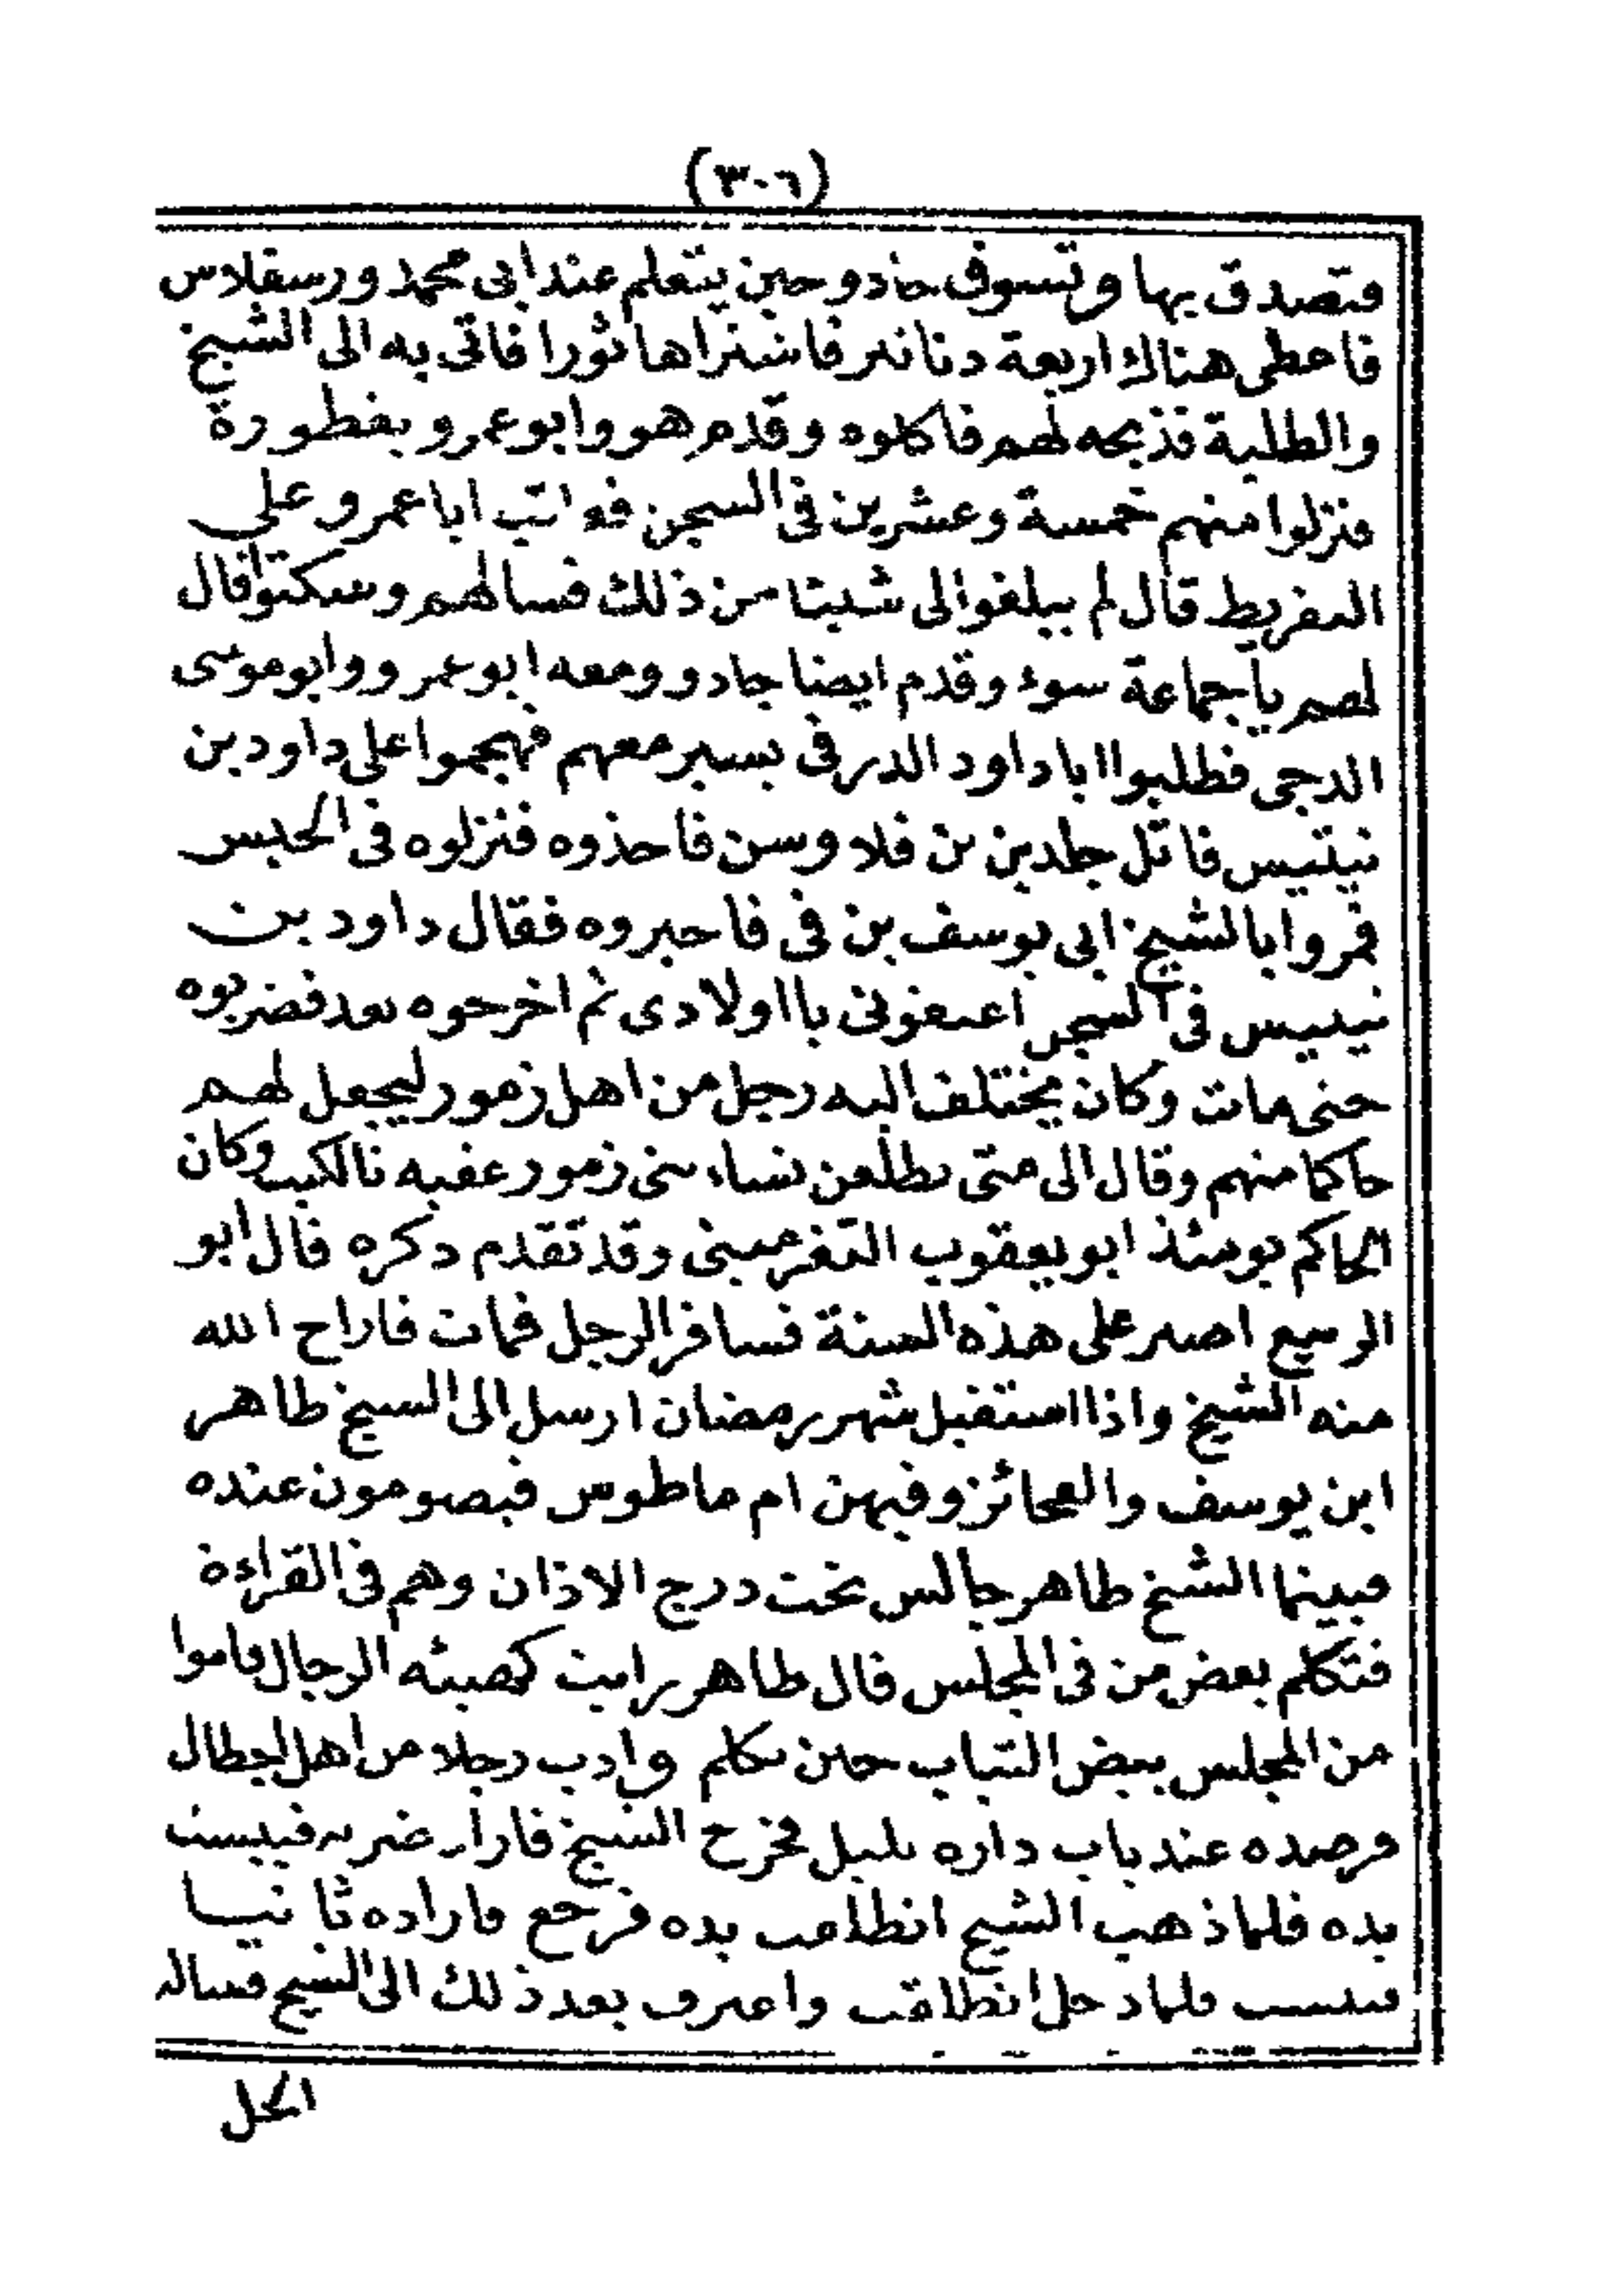 (٣٠٦)
فتصدق بها وتسوف جادو حين يتعلم عند ابى محمد ورسفلاس
فاعطى هناك اربعة دنانير فاشتراها ثورا فاتى به الى الشيخ
والطلبة فذبحه لهم فاكلوه وقدم هو وابو عمرو بغطورة
فنزلوا منهم خمسة وعشرين فى السجن فعاتب ابا عمرو على
التفريط قال لم يبلغوا الى شيئا من ذلك فسالهم وسكتوا قال
لهم يا جماعة سوء وقدم ايضا جادو ومعه ابو عمرو وابو موسى
الدجى فطلبوا ابا داود الدرفى يسير معهم فهجموا على داود بن
نيتيس قاتل جلدين بن فلاوسن فاخذوه فنزلوه فى الحبس
فمروا بالشيخ ابى يوسف بن فى فاخبروه فقال داود بن
نيتيس فى السجن اعتقونى يا اولادى ثم اخرجوه بعد فضربوه
حتى مات وكان يختلف اليه رجل من اهل زمور ليجعل لهم
حاكما منهم وقال الى متى يطلعن نساء بنى زمور عقبه تالكيب وكان
الحاكم يومئذ ابو يعقوب التغرمينى وقد تقدم ذكره قال ابو
الربيع اصبر على هذه السنة فسافر الرجل فمات فاراح الله
منه الشيخ واذا استقبل شهر رمضان ارسل الى الشيخ طاهر
ابن يوسف والعجائز وفيهن ام ماطوس فيصومون عنده
فبينما الشيخ طاهر جالس تحت درج الاذان وهم فى القراءة
فتكلم بعض من فى المجلس قال طاهر رايت كهيئه الرجال قاموا
من المجلس ببعض الثياب حين تكلم وادب رجلا من اهل ايجطال
فرصده عند باب داره بليل فخرج الشيخ فاراد ضربه فيبست
يده فلما ذهب الشيخ انطلقت يده فرجع فاراده ثانيا
فيبست فلما دخل انطلقت واعترف بعد ذلك الى الشيخ فساله
الحل